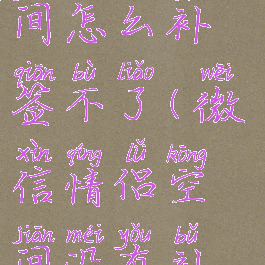 间怎么补
qiān bù liǎo wēi
签不了(微
xìn qíng lǚ kōng
信情侣空
jiān méi yǒu bǔ
间没有补